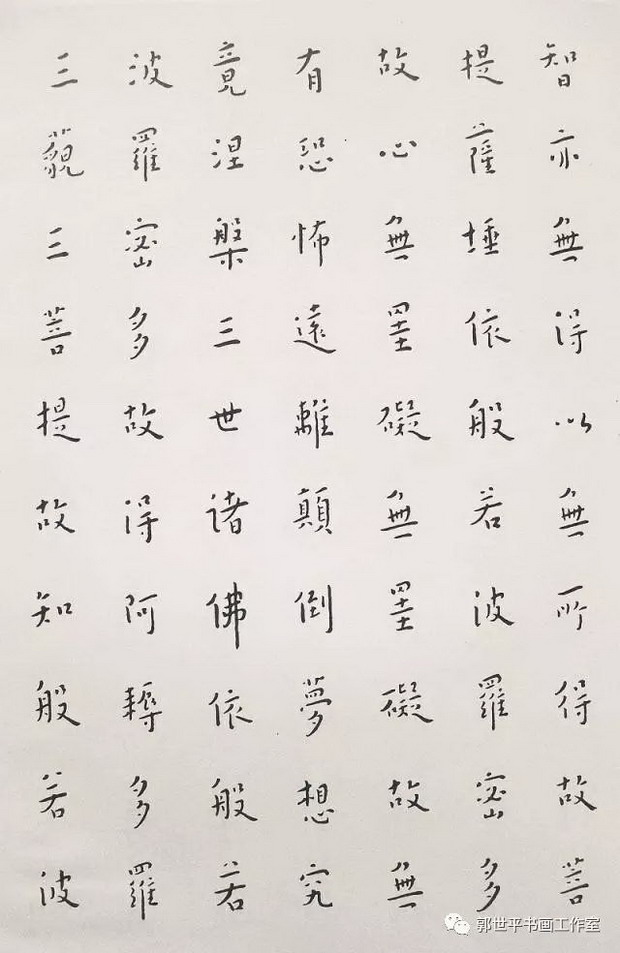 智亦無得以無所得故菩
提薩埵依般若波羅密多
故心無罣礙無罣礙故無
有恐怖遠離顛倒夢想究
竟涅槃三世诸佛依般若
波羅密多故得阿耨多羅
三藐三菩提故知般若波
郭世平书画工作室